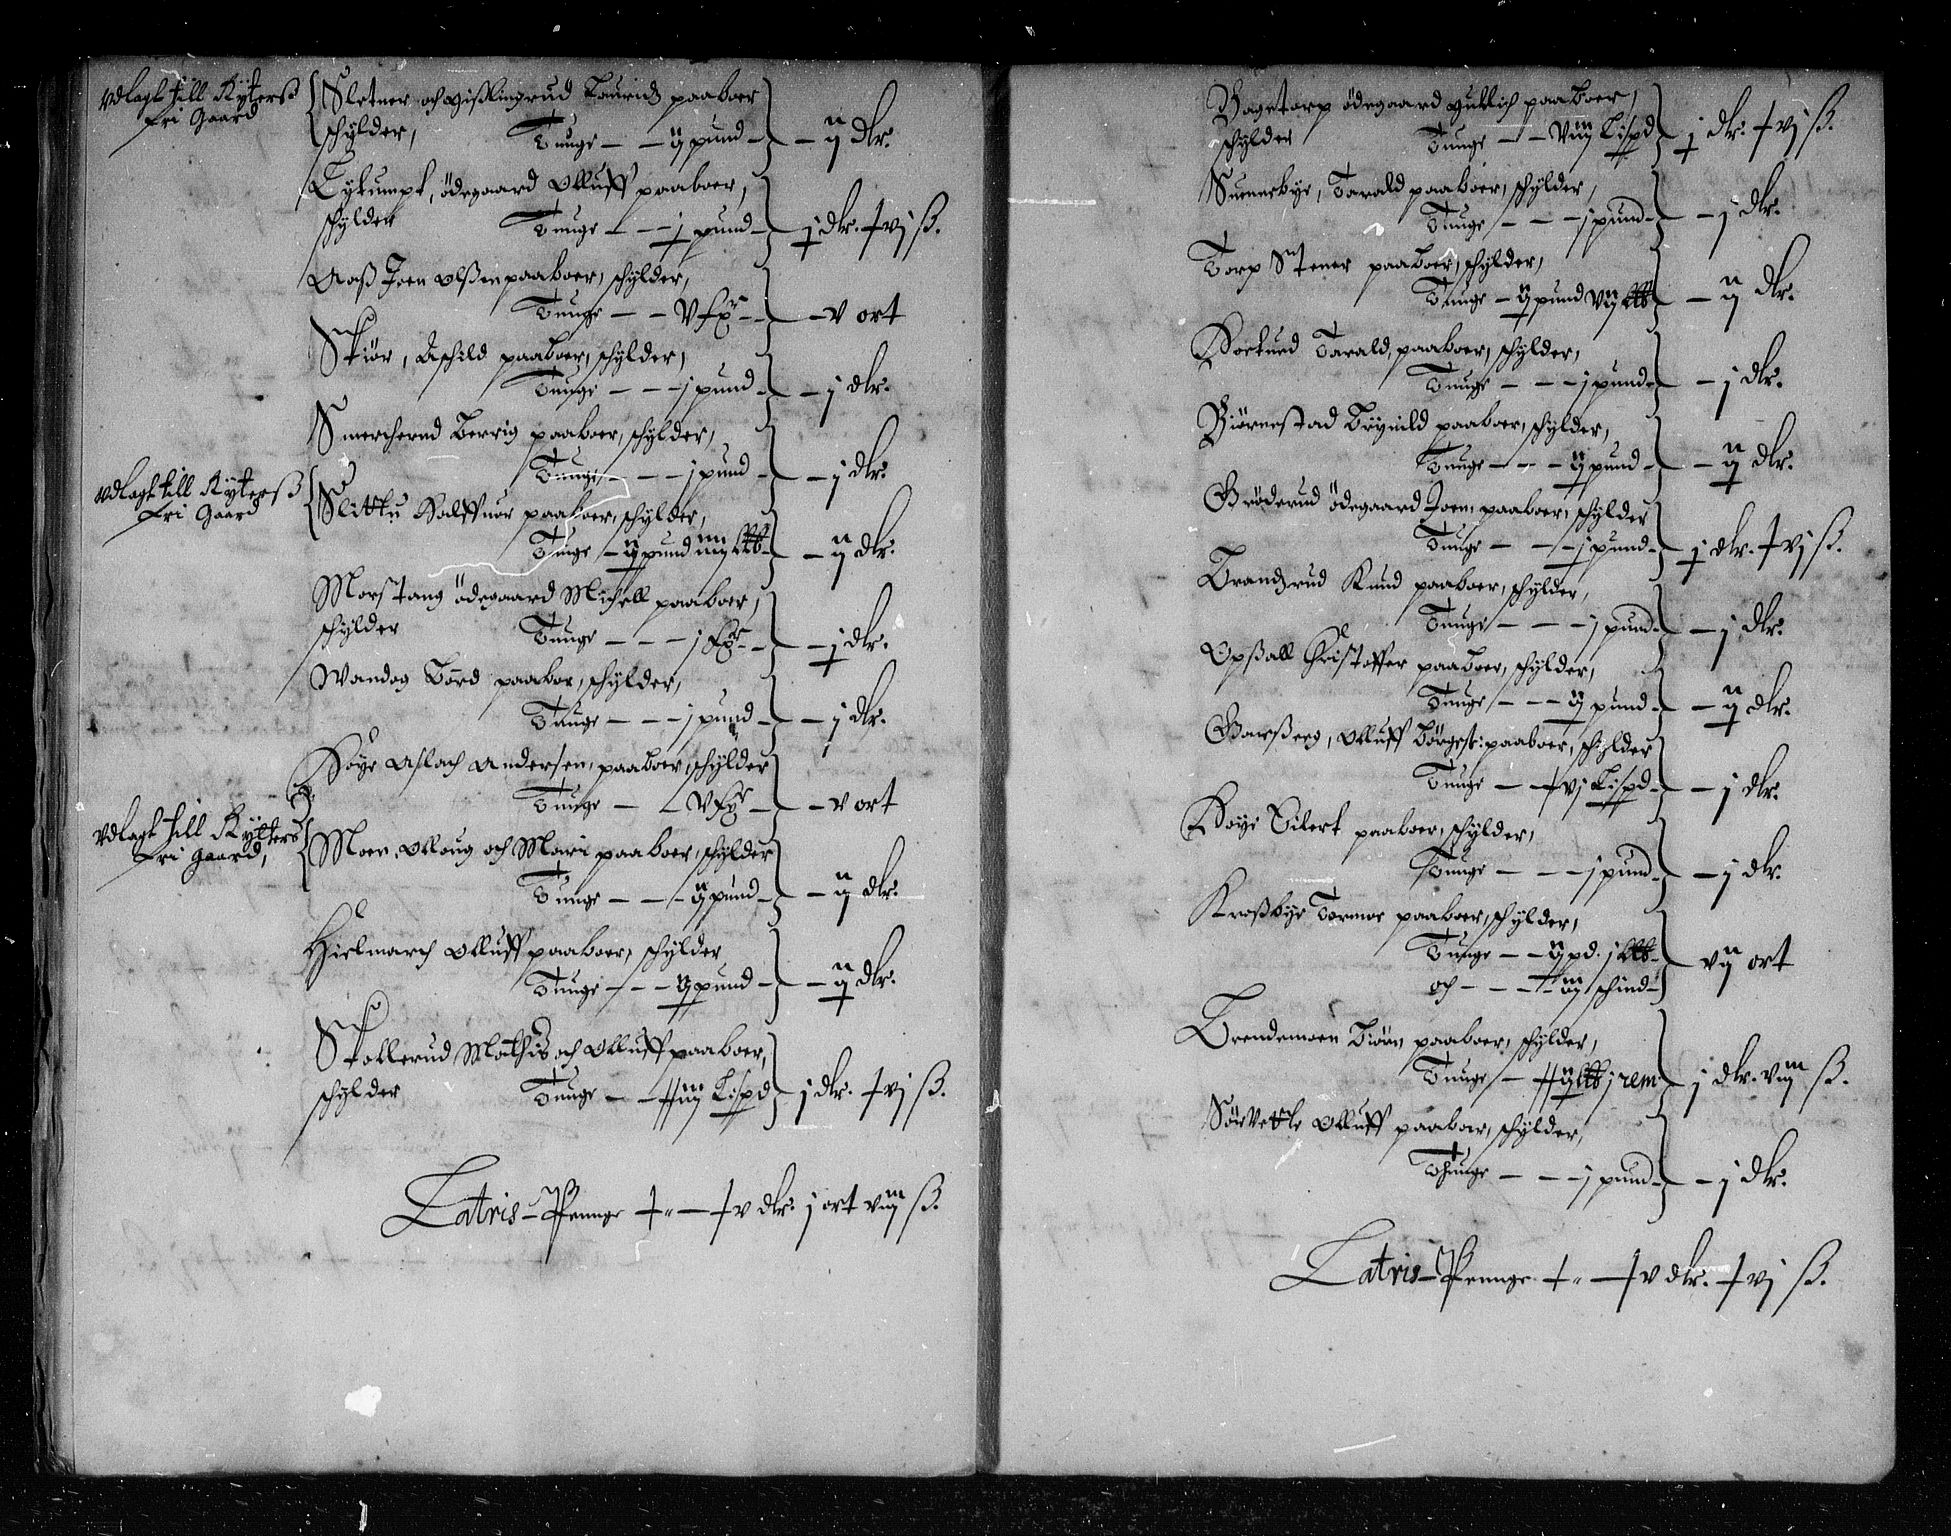 Vdlagt till Rÿterß
fri Gaard
Sletner och Gißlingrud Lauridz paaboer
schÿlder, Tunge – – ij pund – – ij dlr.
Lÿkumpf, ödegaard Olluff paaboer,
schÿlder Tunge – – j pund – j dlr. xvj ß.
Aaß Joen Olßen paaboer, schÿlder,
Tunge – – V fr – – v ort
Skiör, Aschild paaboer, schÿlder,
Tunge – – – j pund – – j dlr.
Smerchernd Berrig paaboer, schÿlder,
Tunge – – – j pund – – j dlr.
Vdlagt till Rÿterß
fri Gaard
Slittu Halffuor paaboer, schÿlder,
Tunge – ij pund iiij – ij dlr.
Morstang ödegaard Michell paaboer,
schÿlder Tunge – – – j – – j dlr.
Wandog Bård paaboer, schÿlder,
Tunge – – – j pund – – j dlr.
Höye Aslach Andersen, paaboer, schÿlder
Tunge – – V – – v ort
Vdlagt till Rÿtters
fri Gaard,
Moen, Olloug och Mari paaboer, schÿlder
Tunge – – – ij pund – – ij dlr.
Hielmarch Olluff paaboer, schÿlder
Tunge – – – ij pund – – ij dlr.
Skollerud Mathis och Olluff paaboer,
schÿlder Tunge – – xxiij Lispd j dlr. xvj ß.
Latris – Penge x – xv dlr. j ort viij ß.
Bagetorp ödegaard Gullich paaboer,
schÿlder Tunge – – Viij Lispd j dlr. xvj ß.
Sunnerbye, Tarald paaboer, schÿlder,
Tunge – – – j pund – – j dlr.
Torp Stener paaboer, schÿlder,
Tunge – ij pund Vij – ij dlr.
Tarald, paaboer, schÿlder,
Tunge – – – j pund – – j dlr.
Biörnestad Brÿnild paaboer, schÿlder,
Tunge – – – ij pund – – ij dlr.
Gröderud ödegaard Joen, paaboer, schÿlder
Tunge – – – j pund – j dlr. xvj ß.
Trandzrud Knud paaboer, schÿlder,
Tunge – – – j pund – – j dlr.
Opßall Christoffer paaboer, schÿlder,
Tunge – – – ij pund – – ij dlr.
Olluff paaboer, schÿlder
Tunge – – xvj Lispd – – j dlr.
Høye Eilert paaboer, schÿlder,
Tunge – – – j pund – – j dlr.
Kroßbye Tormoe paaboer, schÿlder,
Tunge – – ij pd. j
och – – – schind – vij ort
Trendemoen Biörn paaboer, schÿlder,
Tunge – xxij j rem j dlr. viij ß.
Sörvettle Olluff paaboer, schÿlder,
Thunge – – – j pund – – j dlr.
Latris – Penge x – xv dlr. xvj ß.